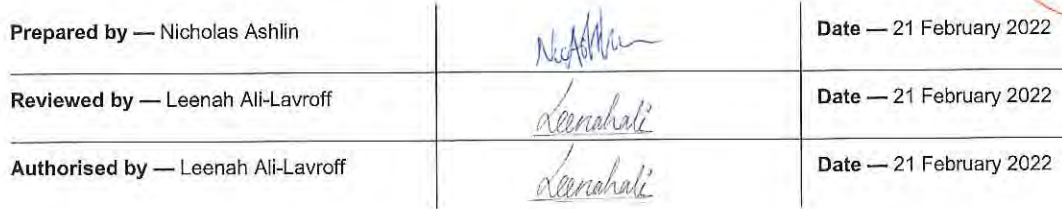 Prepared by — Nicholas Ashlin NicAshlin Date — 21 February 2022
Reviewed by — Leenah Ali-Lavroff Leenahali Date — 21 February 2022
Authorised by — Leenah Ali-Lavroff Leenahali Date — 21 February 2022